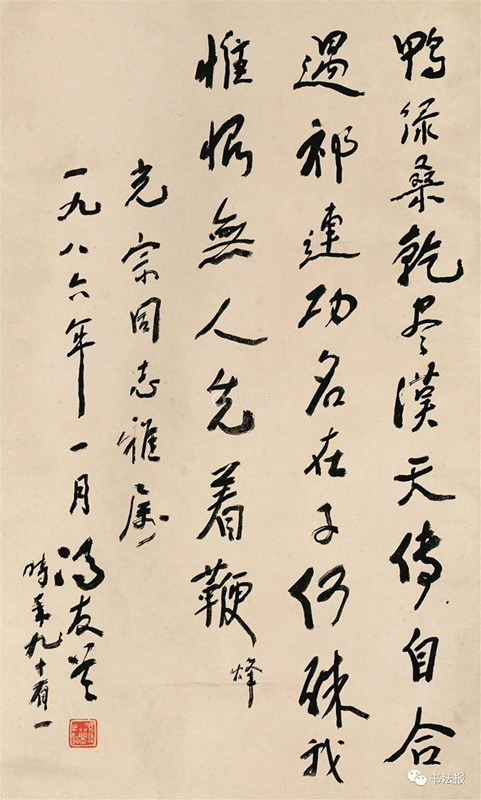 鸭绿桑乾尽漢天傳自合
過祁連功名在子何殊我
惟恨無人先着鞭 烽
光宗同志雅属
一九八六年一月 冯友兰
時年九十有一
书法报